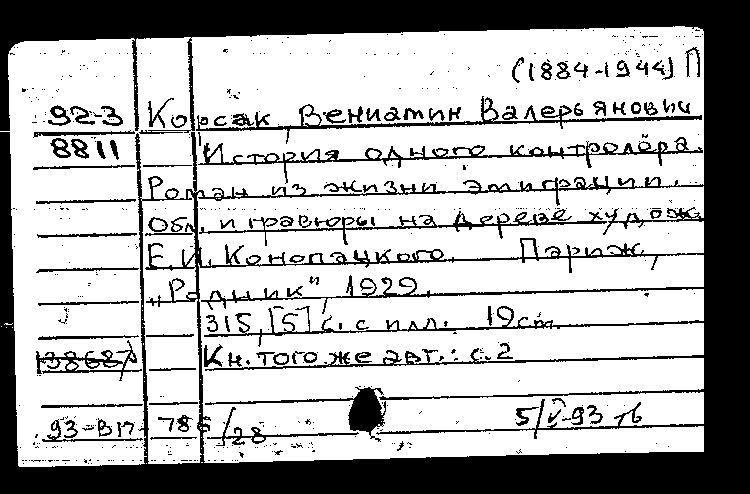 (1884-1944) П
92-3 Корсак, Вениамин Валерьянович
8811 История одного контролёра.
Роман из жизни эмиграции.
Обл. и гравюры на дереве худож.
Е.И. Конопацкого. Париж,
„Родник", 1929.
315, [5] с. с илл. 19 cm.
138687 Кн. того же авт.: с. 2
93-В17-786/28 5/V-93 тб